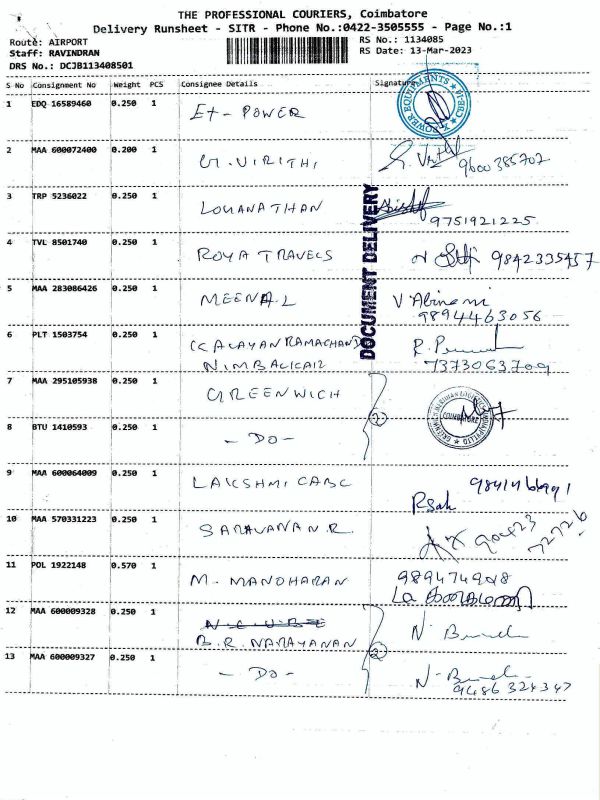 THE PROFESSIONAL COURIERS, Coimbatore
Delivery Runsheet - SITR - Phone No.:0422-3505555 - Page No.:1
Route: AIRPORT
Staff: RAVINDRAN
DRS No.: DCJB113408501
RS No.: 1134085
RS Date: 13-Mar-2023
S No Consignment No Weight PCS Consignee Details Signature
1 EDQ 16589460 0.250 1 Ex - POWER
POWER EQUIPMENTS
2 MAA 600072400 0.200 1 G. VIRITHI
9600385702
3 TRP 5236022 0.250 1 LOGANATHAN
9751921225
DOCUMENT DELIVERY
4 TVL 8501740 0.250 1 ROYA TRAVELS 9842335457
5 MAA 283086426 0.250 1 MEENA L V Abinami
9894463056
6 PLT 1503754 0.250 1 KALAYAN RAMACHAND R.
NIMBALKAR 7373063709
7 MAA 295105938 0.250 1 GREENWICH
COIMBATORE
8 BTU 1410593 0.250 1 - DO - 2
9 MAA 600064009 0.250 1 LAKSHMI CABC
10 MAA 570331223 0.250 1 SARAVANAN R.
11 POL 1922148 0.570 1 M. MANOHARAN
12 MAA 600009328 0.250 1 B. R. NARAYANAN N.
13 MAA 600009327 0.250 1 - DO - 2 N.
9486324347